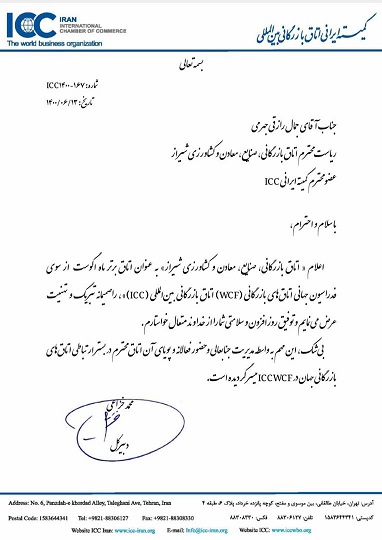 ICC IRAN
INTERNATIONAL
CHAMBER OF COMMERCE
The world business organization
کمیته ایرانی اتاق بازرگانی بین‌المللی
بسمه تعالی
شماره: ۱۶۷-ICC۱۴۰۰
تاریخ: ۱۴۰۰/۰۶/۱۳
جناب آقای جمال رازقی جهرمی
ریاست محترم اتاق بازرگانی، صنایع، معادن و کشاورزی شیراز
عضو محترم کمیته ایرانی ICC
با سلام و احترام،
اعلام « اتاق بازرگانی، صنایع، معادن و کشاورزی شیراز» به عنوان اتاق برتر ماه اگوست از سوی
فدراسیون جهانی اتاق‌های بازرگانی (WCF) اتاق بازرگانی بین‌المللی (ICC)، را صمیمانه تبریک و تهنیت
عرض می نمایم و توفیق روز افزون و سلامتی شما را از خداوند متعال خواستارم.
بی شک، این مهم به واسطه مدیریت جنابعالی و حضور فعالانه و پویای آن اتاق محترم در بستر ارتباطی اتاق‌های
بازرگانی جهان در ICCWCF میسر گردیده است.
محمد خزاعی
دبیرکل
Address: No. 6, Panzdah-e khordad Alley, Taleghani Ave, Tehran, Iran
آدرس: تهران، خیابان طالقانی، بین موسوی و مفتح، کوچه پانزده خرداد، پلاک ۶، طبقه ۴
Postal Code: 1583644341 Tel: +9821-88306127 Fax: +9821-88308330
کدپستی: ۱۵۸۳۶۴۴۳۴۱ تلفن: ۸۸۳۰۶۱۲۷ فکس: ۸۸۳۰۸۳۳۰
Website ICC Iran: www.icc-iran.org E-mail: Info@icc-iran.org Website ICC: www.iccwbo.org